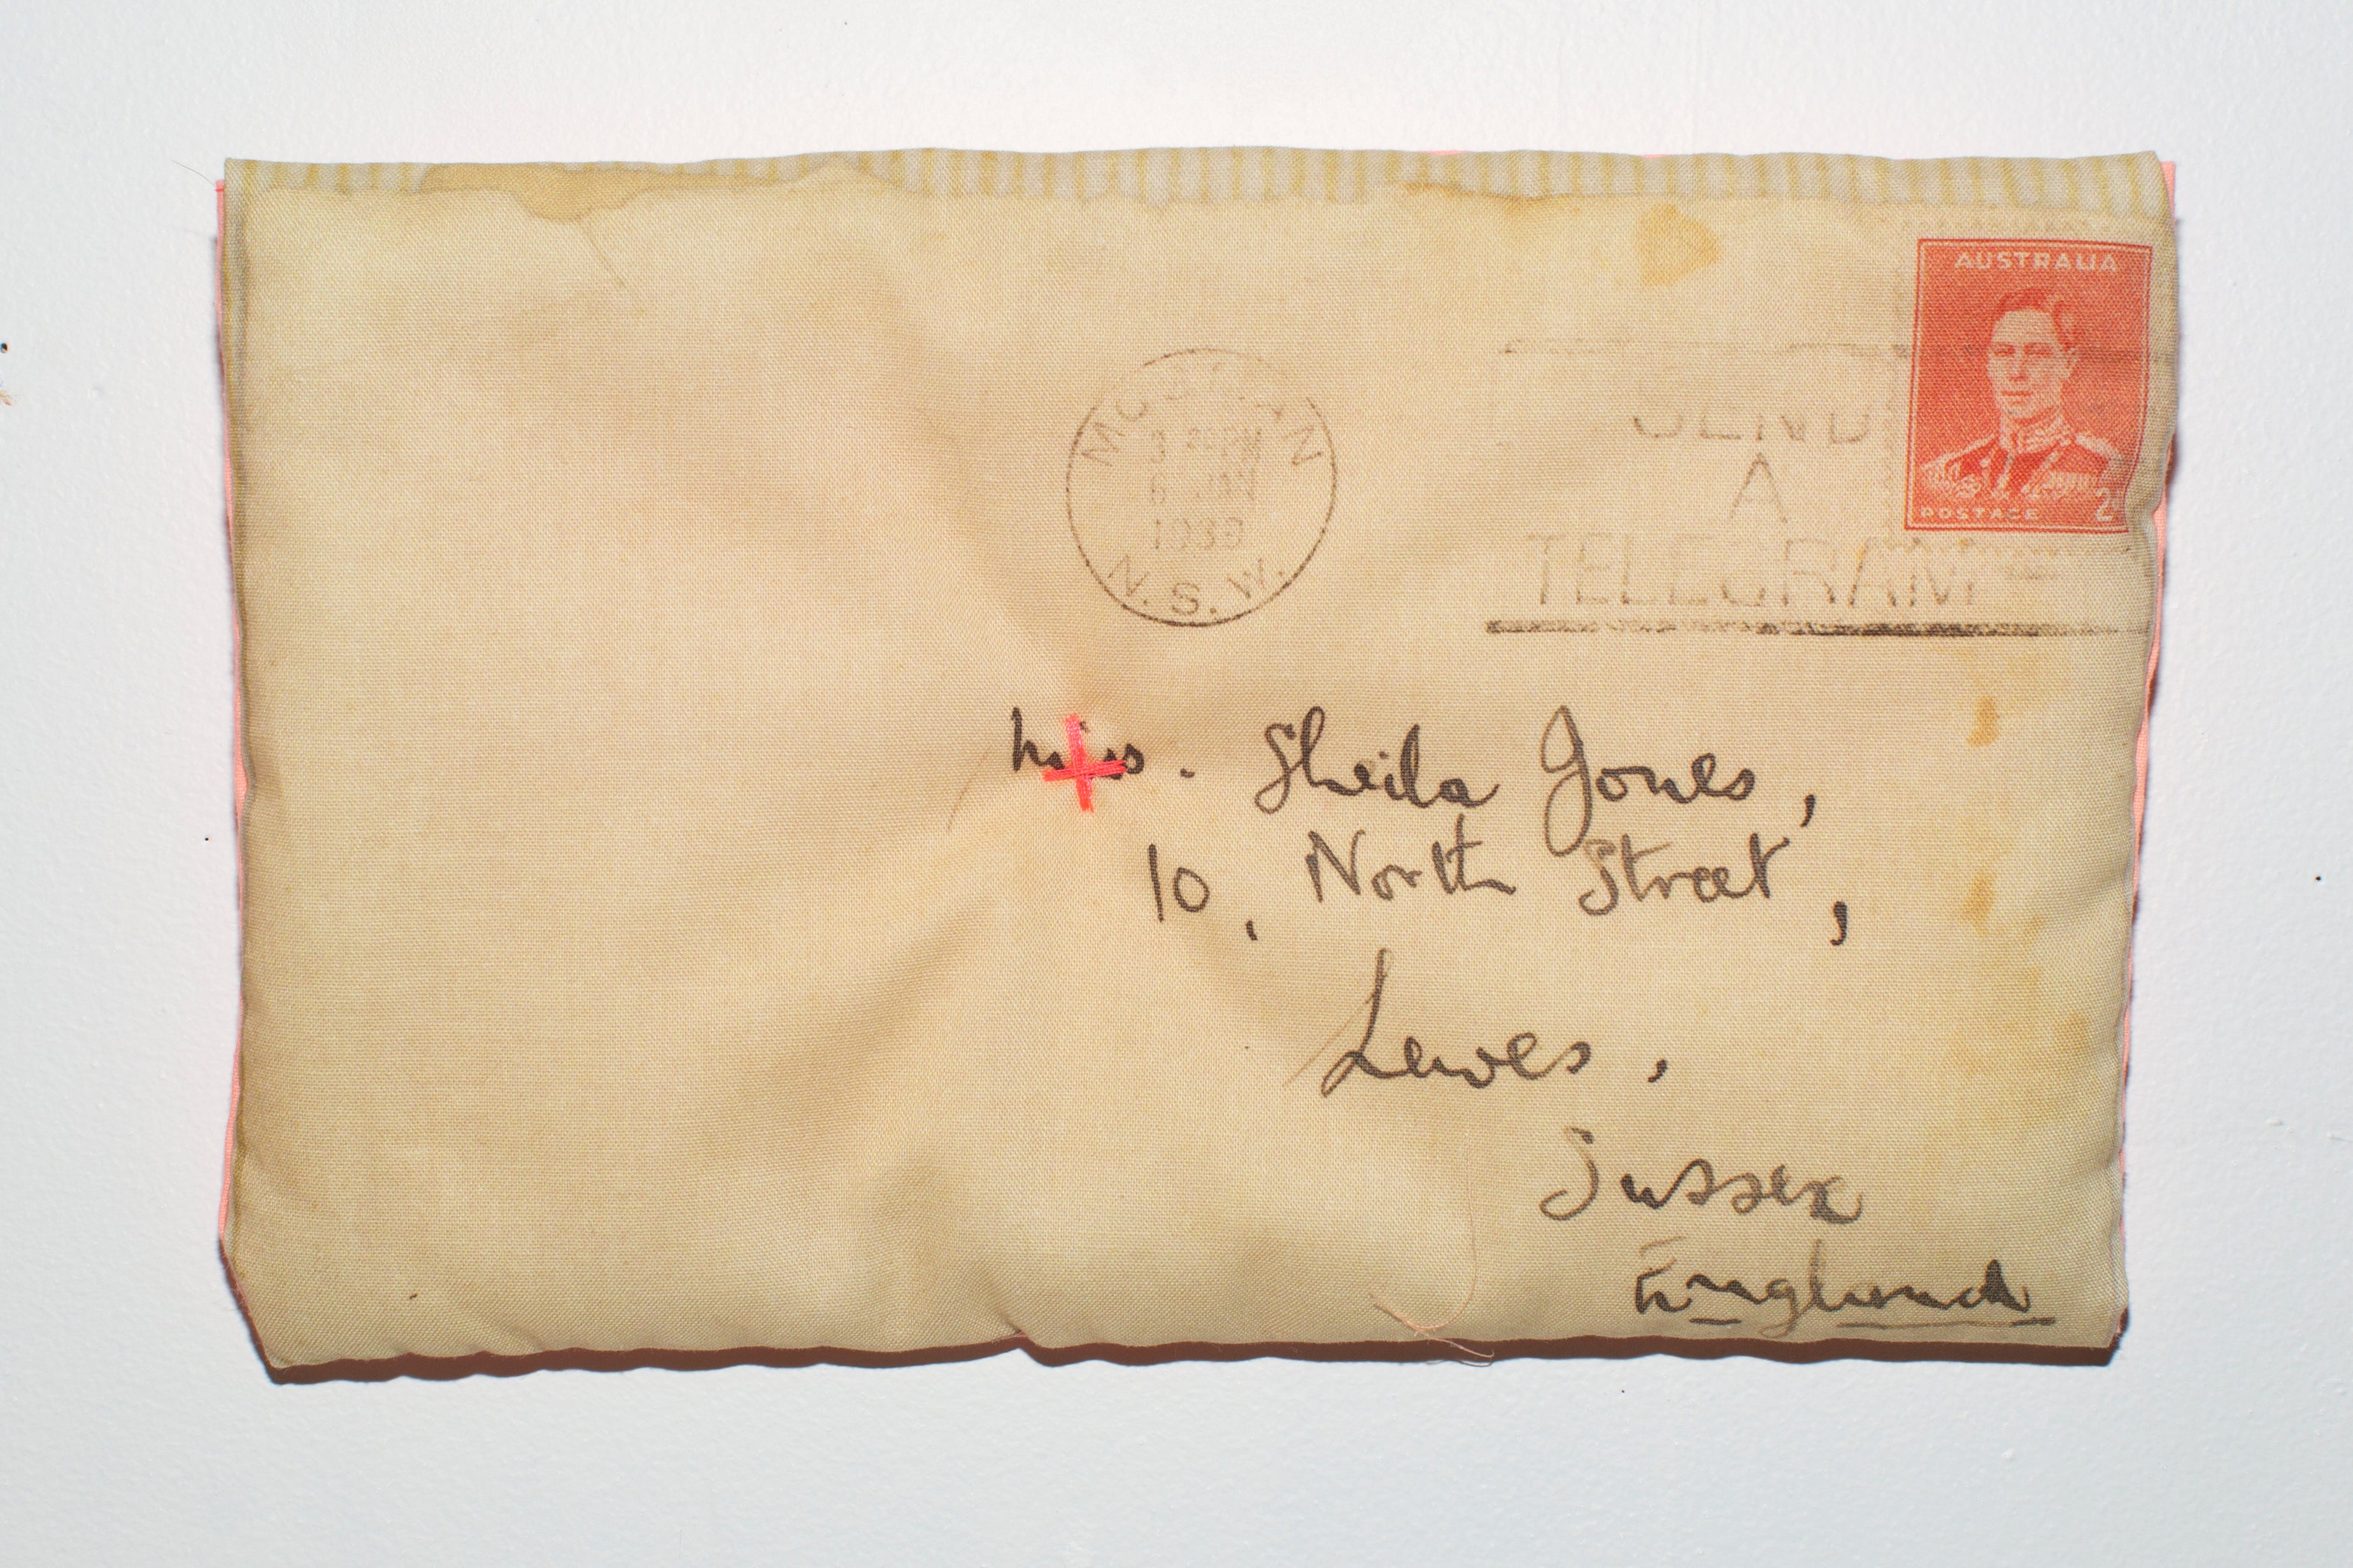 AUSTRALIA
POSTAGE 2
MOSMAN
3 30 PM
6 JAN
1939
N.S.W.
SEND
A
TELEGRAM
Miss. Sheila Jones,
10, North Street,
Lewes,
Sussex
England